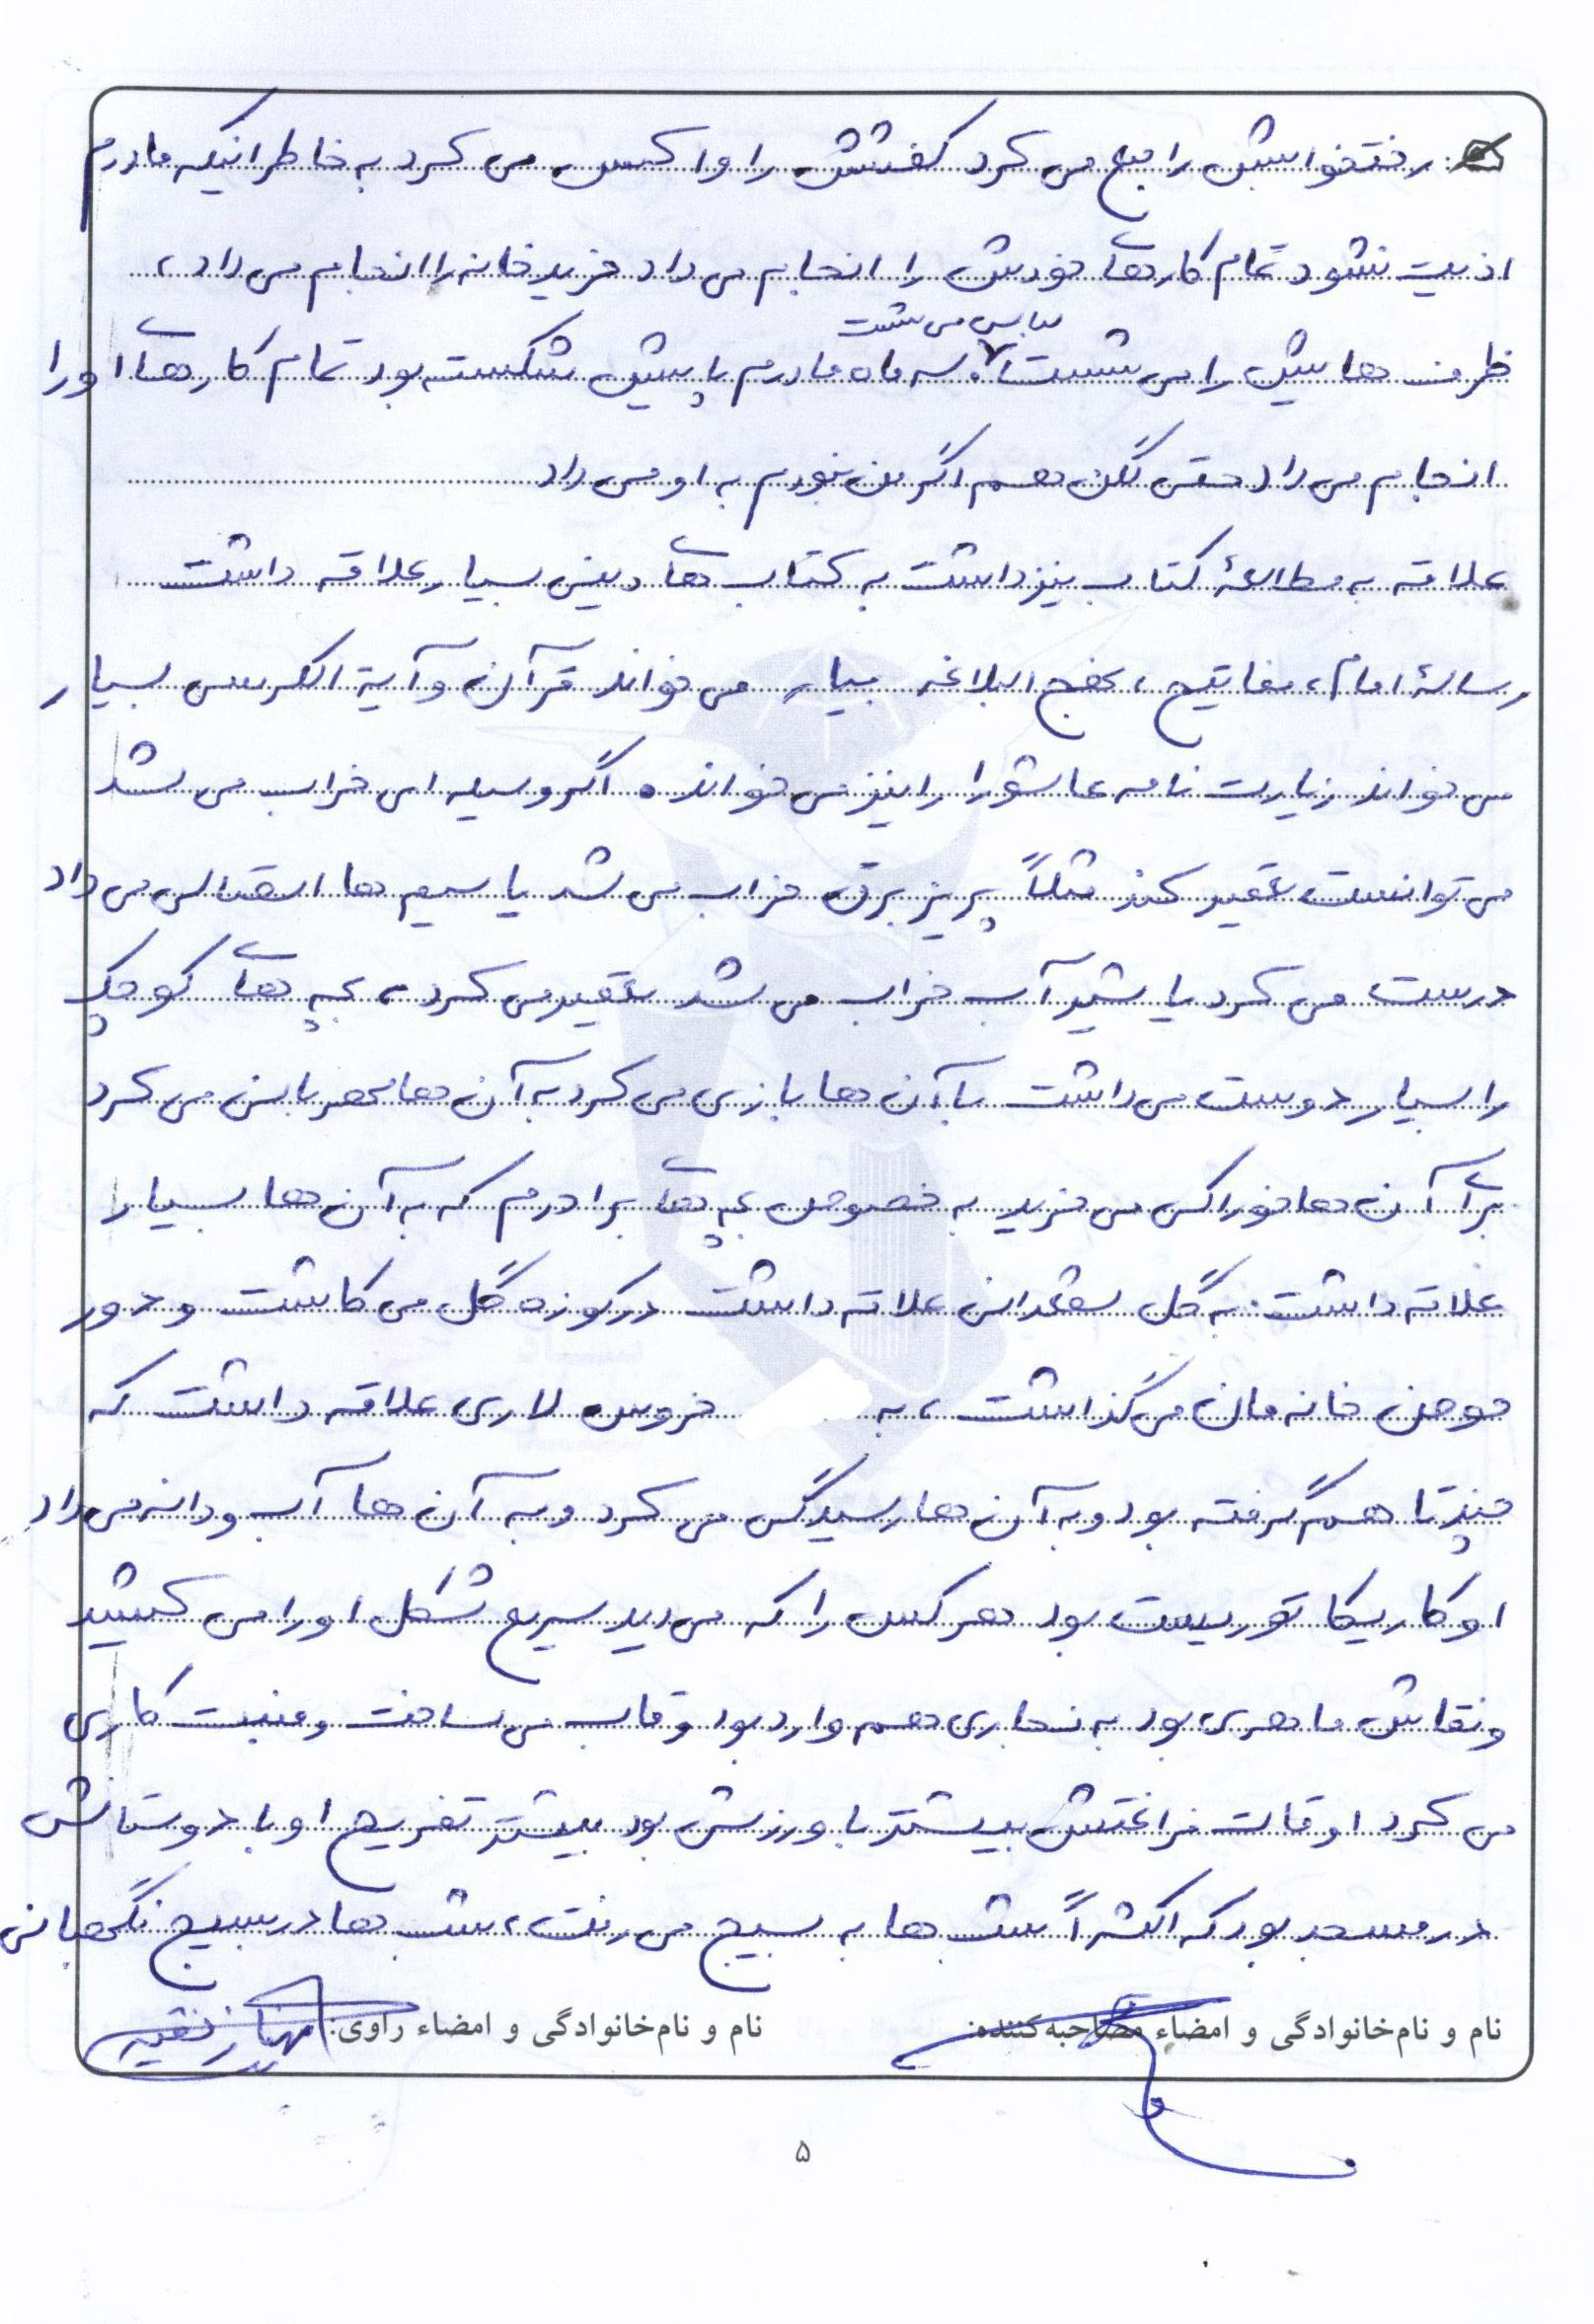 رختخوابش را جمع می کرد کفشش را واکس می کرد به خاطر اینکه مادرم
اذیت نشود تمام کارهای خودش را انجام می داد خرید خانه را انجام می داد،
لباس می شست
ظرف هایش را می شست. سه ماه مادرم پایش شکسته بود تمام کارهای او را
انجام می داد حتی لگن هم اگر من نبودم به او می داد
علاقه به مطالعهٔ کتاب نیز داشت به کتاب های دینی بسیار علاقه داشت
رسالهٔ امام، مفاتیح، نهج البلاغه بسیار می خواند قرآن و آیة الکرسی بسیار
می خواند زیارت نامه عاشورا را نیز می خواند. اگر وسیله ای خراب می شد
می توانست تعمیر کند مثلاً پریز برق خراب می شد یا سیم ها اتصالی می داد
درست می کرد یا شیر آب خراب می شد تعمیر می کرد، بچه های کوچک
را بسیار دوست می داشت با آن ها بازی می کرد به آن ها مهربانی می کرد
برای آن ها خوراکی می خرید به خصوص بچه های برادرم که به آن ها بسیار
علاقه داشت. به گل شمعدانی علاقه داشت در کوزه گل می کاشت و دور
حوض خانه مان می گذاشت، به خروس لاری علاقه داشت که
چند تا هم گرفته بود و به آن ها رسیدگی می کرد و به آن ها آب و دانه می داد
او کاریکاتوریست بود هر کس را که می دید سریع شکل او را می کشید
و نقاش ماهری بود به نجاری هم وارد بود و قاب می ساخت و منبت کاری
می کرد اوقات فراغتش بیشتر با ورزش بود بیشتر تفریح او با دوستانش
در مسجد بود که اکثراً شب ها به بسیج می رفت، شب ها در بسیج نگهبانی
نام و نام‌خانوادگی و امضاء مصاحبه‌کننده: نام و نام‌خانوادگی و امضاء راوی: مهناز فقیه
۵